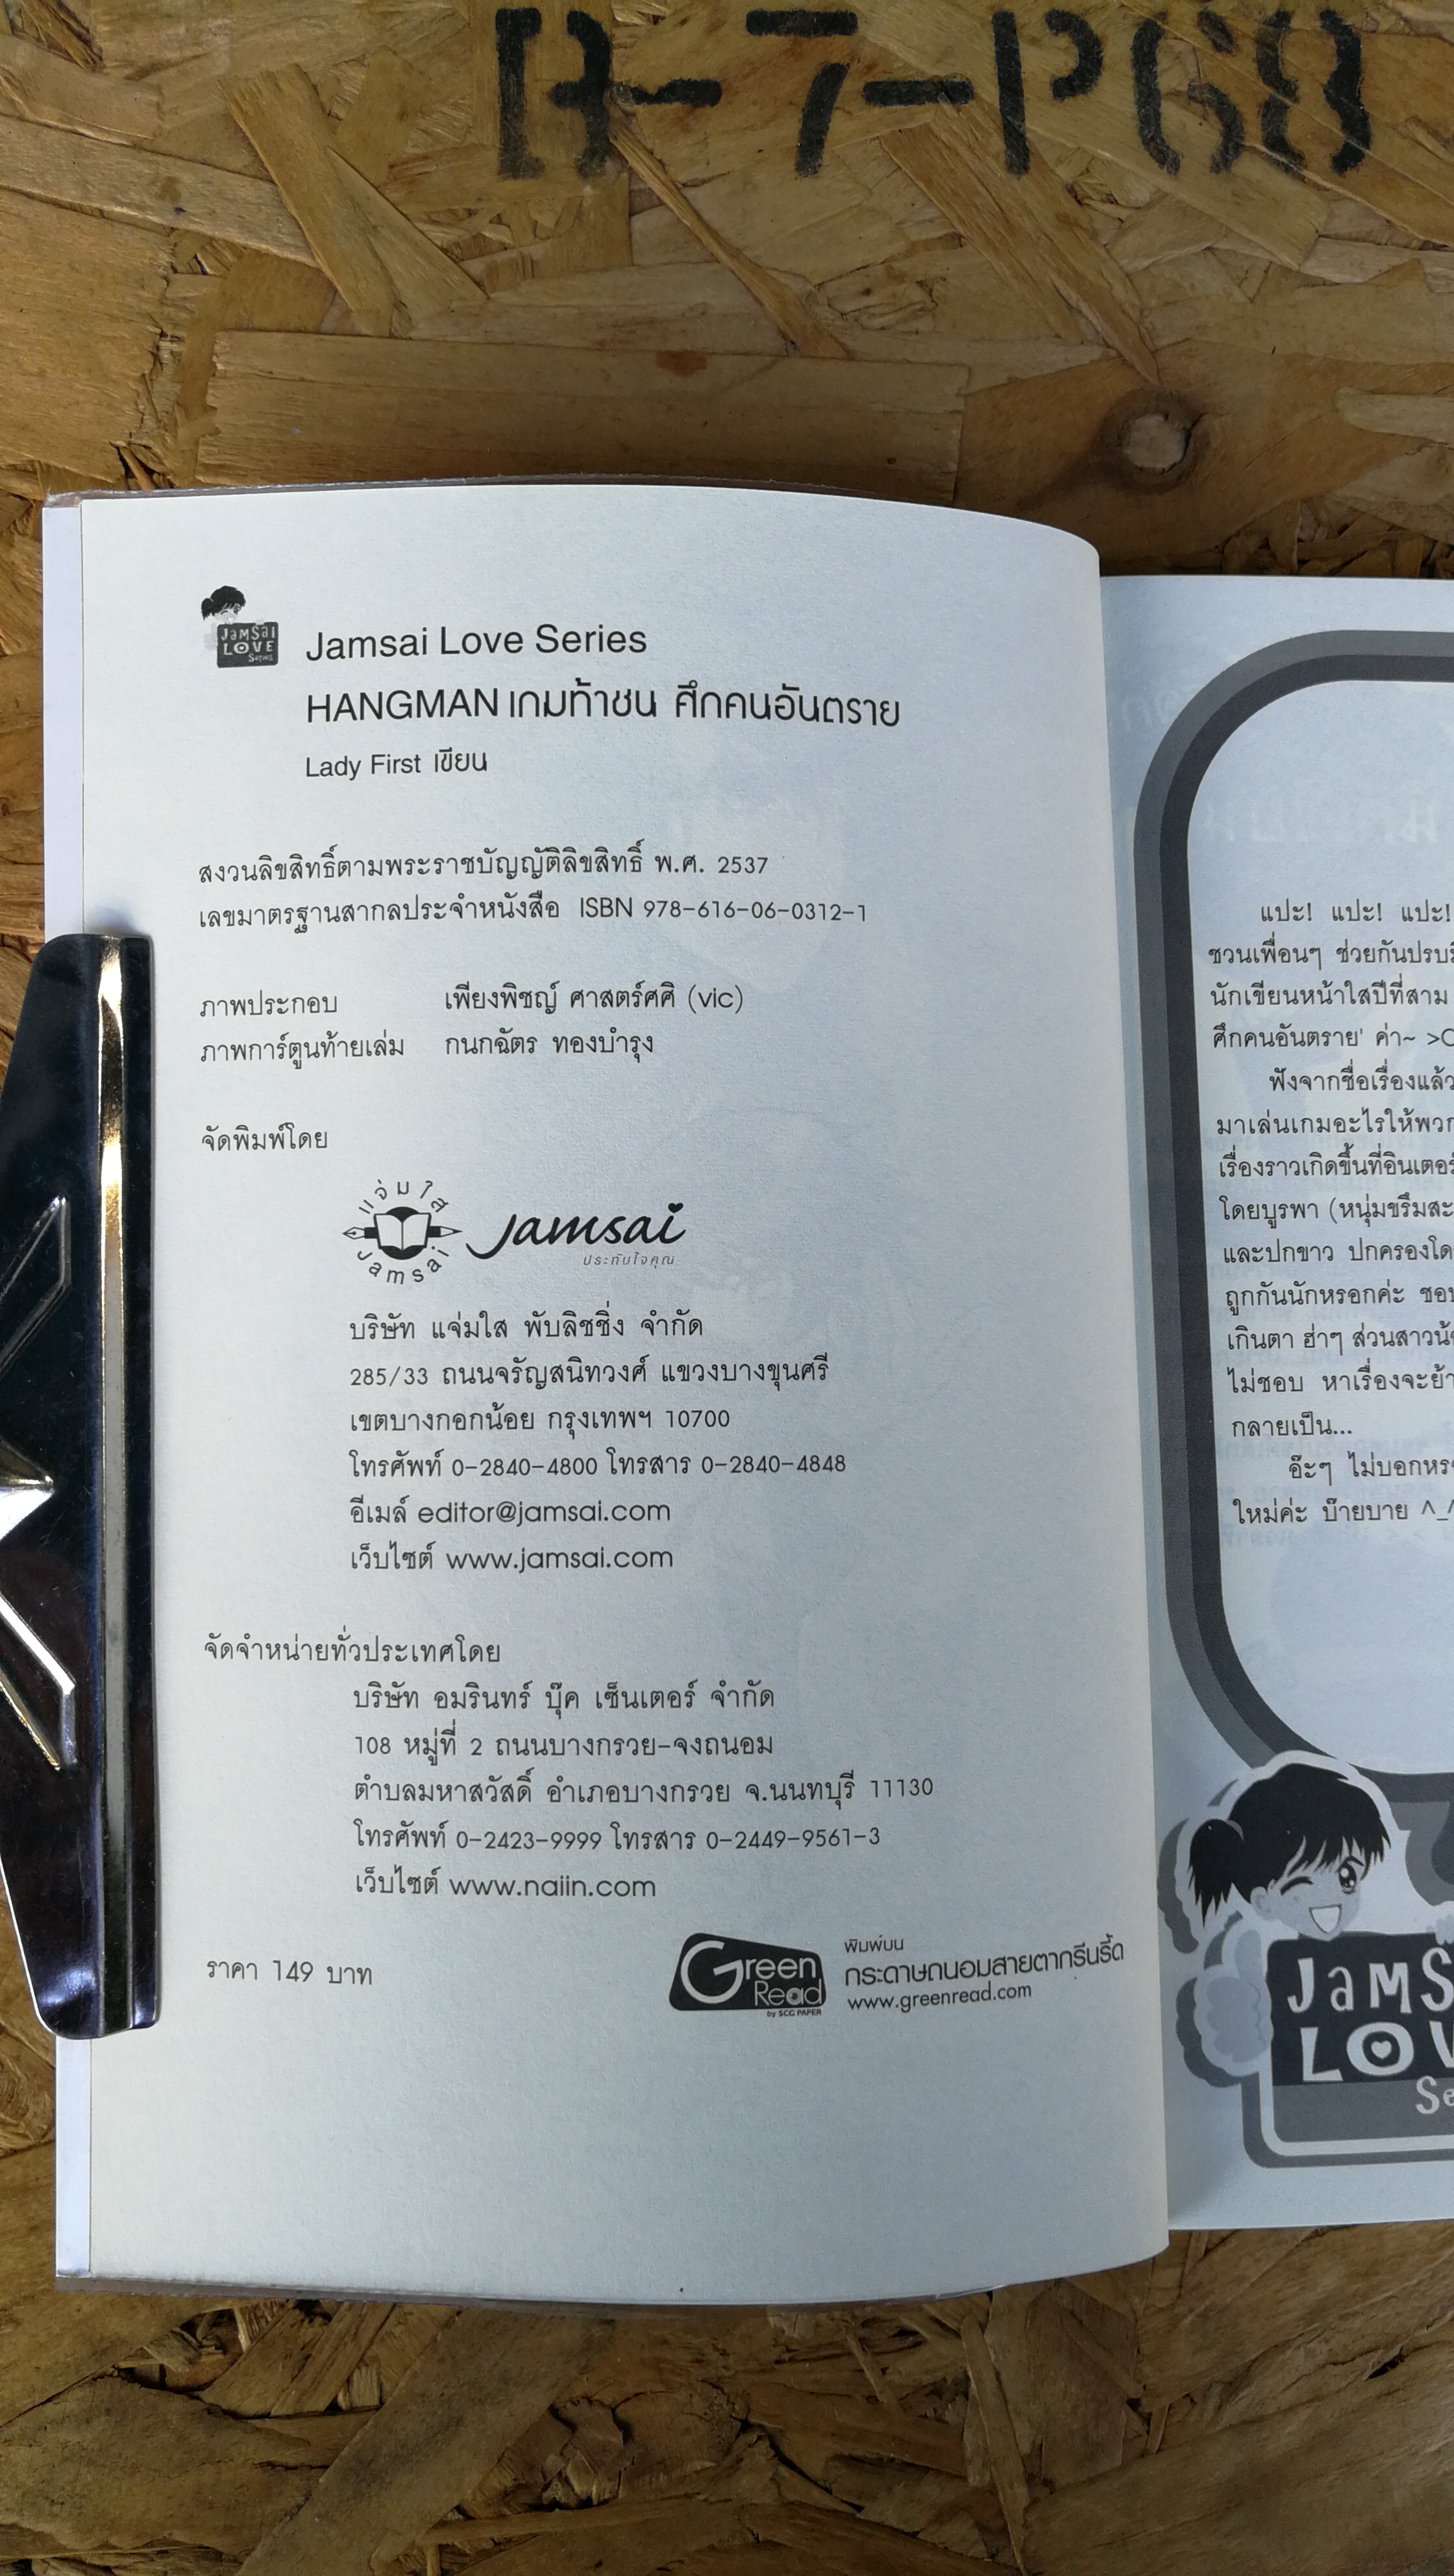 B-7-P68
JaMSai
LOVE
Series
Jamsai Love Series
HANGMAN เกมท้าชน ศึกคนอันตราย
Lady First เขียน
สงวนลิขสิทธิ์ตามพระราชบัญญัติลิขสิทธิ์ พ.ศ. 2537
เลขมาตรฐานสากลประจำหนังสือ ISBN 978-616-06-0312-1
ภาพประกอบ เพียงพิชญ์ ศาสตร์ศศิ (vic)
ภาพการ์ตูนท้ายเล่ม กนกฉัตร ทองบำรุง
จัดพิมพ์โดย
แจ่มใส
Jamsai
Jamsai
ประทับใจคุณ
บริษัท แจ่มใส พับลิชชิ่ง จำกัด
285/33 ถนนจรัญสนิทวงศ์ แขวงบางขุนศรี
เขตบางกอกน้อย กรุงเทพฯ 10700
โทรศัพท์ 0-2840-4800 โทรสาร 0-2840-4848
อีเมล์ editor@jamsai.com
เว็บไซต์ www.jamsai.com
จัดจำหน่ายทั่วประเทศโดย
บริษัท อมรินทร์ บุ๊ค เซ็นเตอร์ จำกัด
108 หมู่ที่ 2 ถนนบางกรวย-จงถนอม
ตำบลมหาสวัสดิ์ อำเภอบางกรวย จ.นนทบุรี 11130
โทรศัพท์ 0-2423-9999 โทรสาร 0-2449-9561-3
เว็บไซต์ www.naiin.com
ราคา 149 บาท
Green
Read
by SCG PAPER
พิมพ์บน
กระดาษถนอมสายตากรีนรี้ด
www.greenread.com
แปะ! แปะ! แปะ!
ชวนเพื่อนๆ ช่วยกันปรบมื
นักเขียนหน้าใสปีที่สาม
ศึกคนอันตราย' ค่า~ >O
ฟังจากชื่อเรื่องแล้ว
มาเล่นเกมอะไรให้พวก
เรื่องราวเกิดขึ้นที่อินเตอร์
โดยบูรพา (หนุ่มขรึมสะ
และปกขาว ปกครองโด
ถูกกันนักหรอกค่ะ ชอบ
เกินตา ฮ่าๆ ส่วนสาวน้
ไม่ชอบ หาเรื่องจะย้า
กลายเป็น...
อ๊ะๆ ไม่บอกหร
ใหม่ค่ะ บ๊ายบาย ^_^
JaMS
LOV
Se